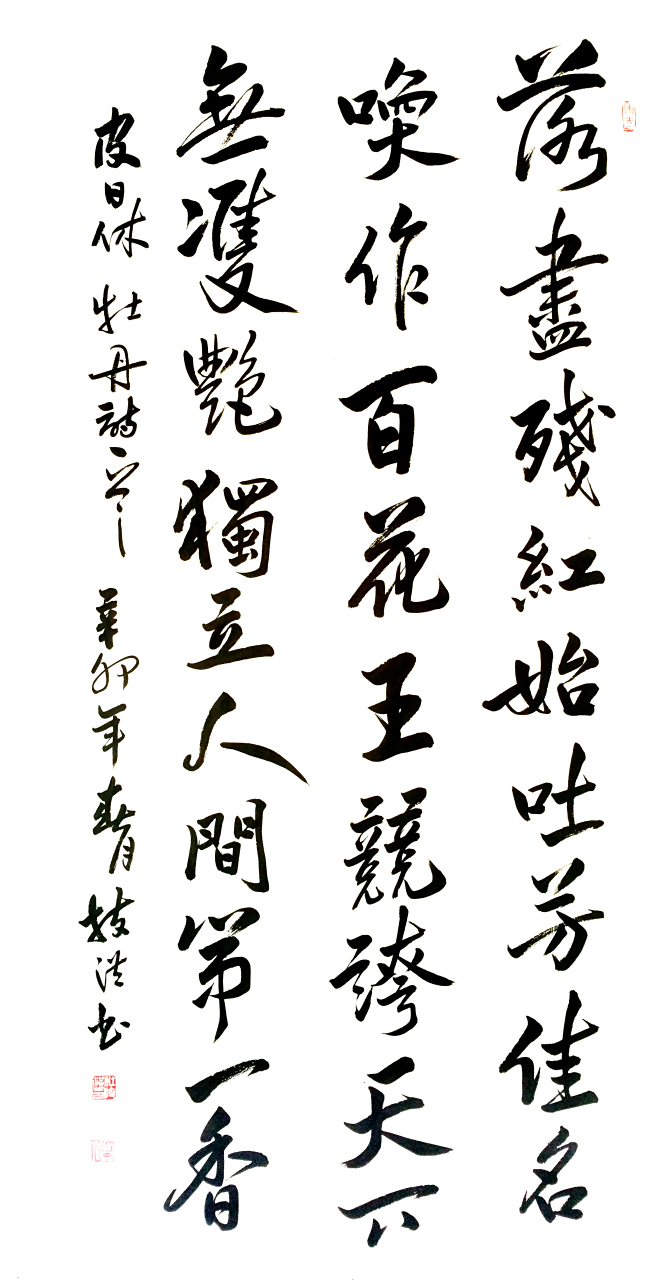 落盡殘紅始吐芳佳名
喚作百花王競誇天下
無雙艷獨立人間第一香
皮日休牡丹詩一首辛卯年春月技洪书